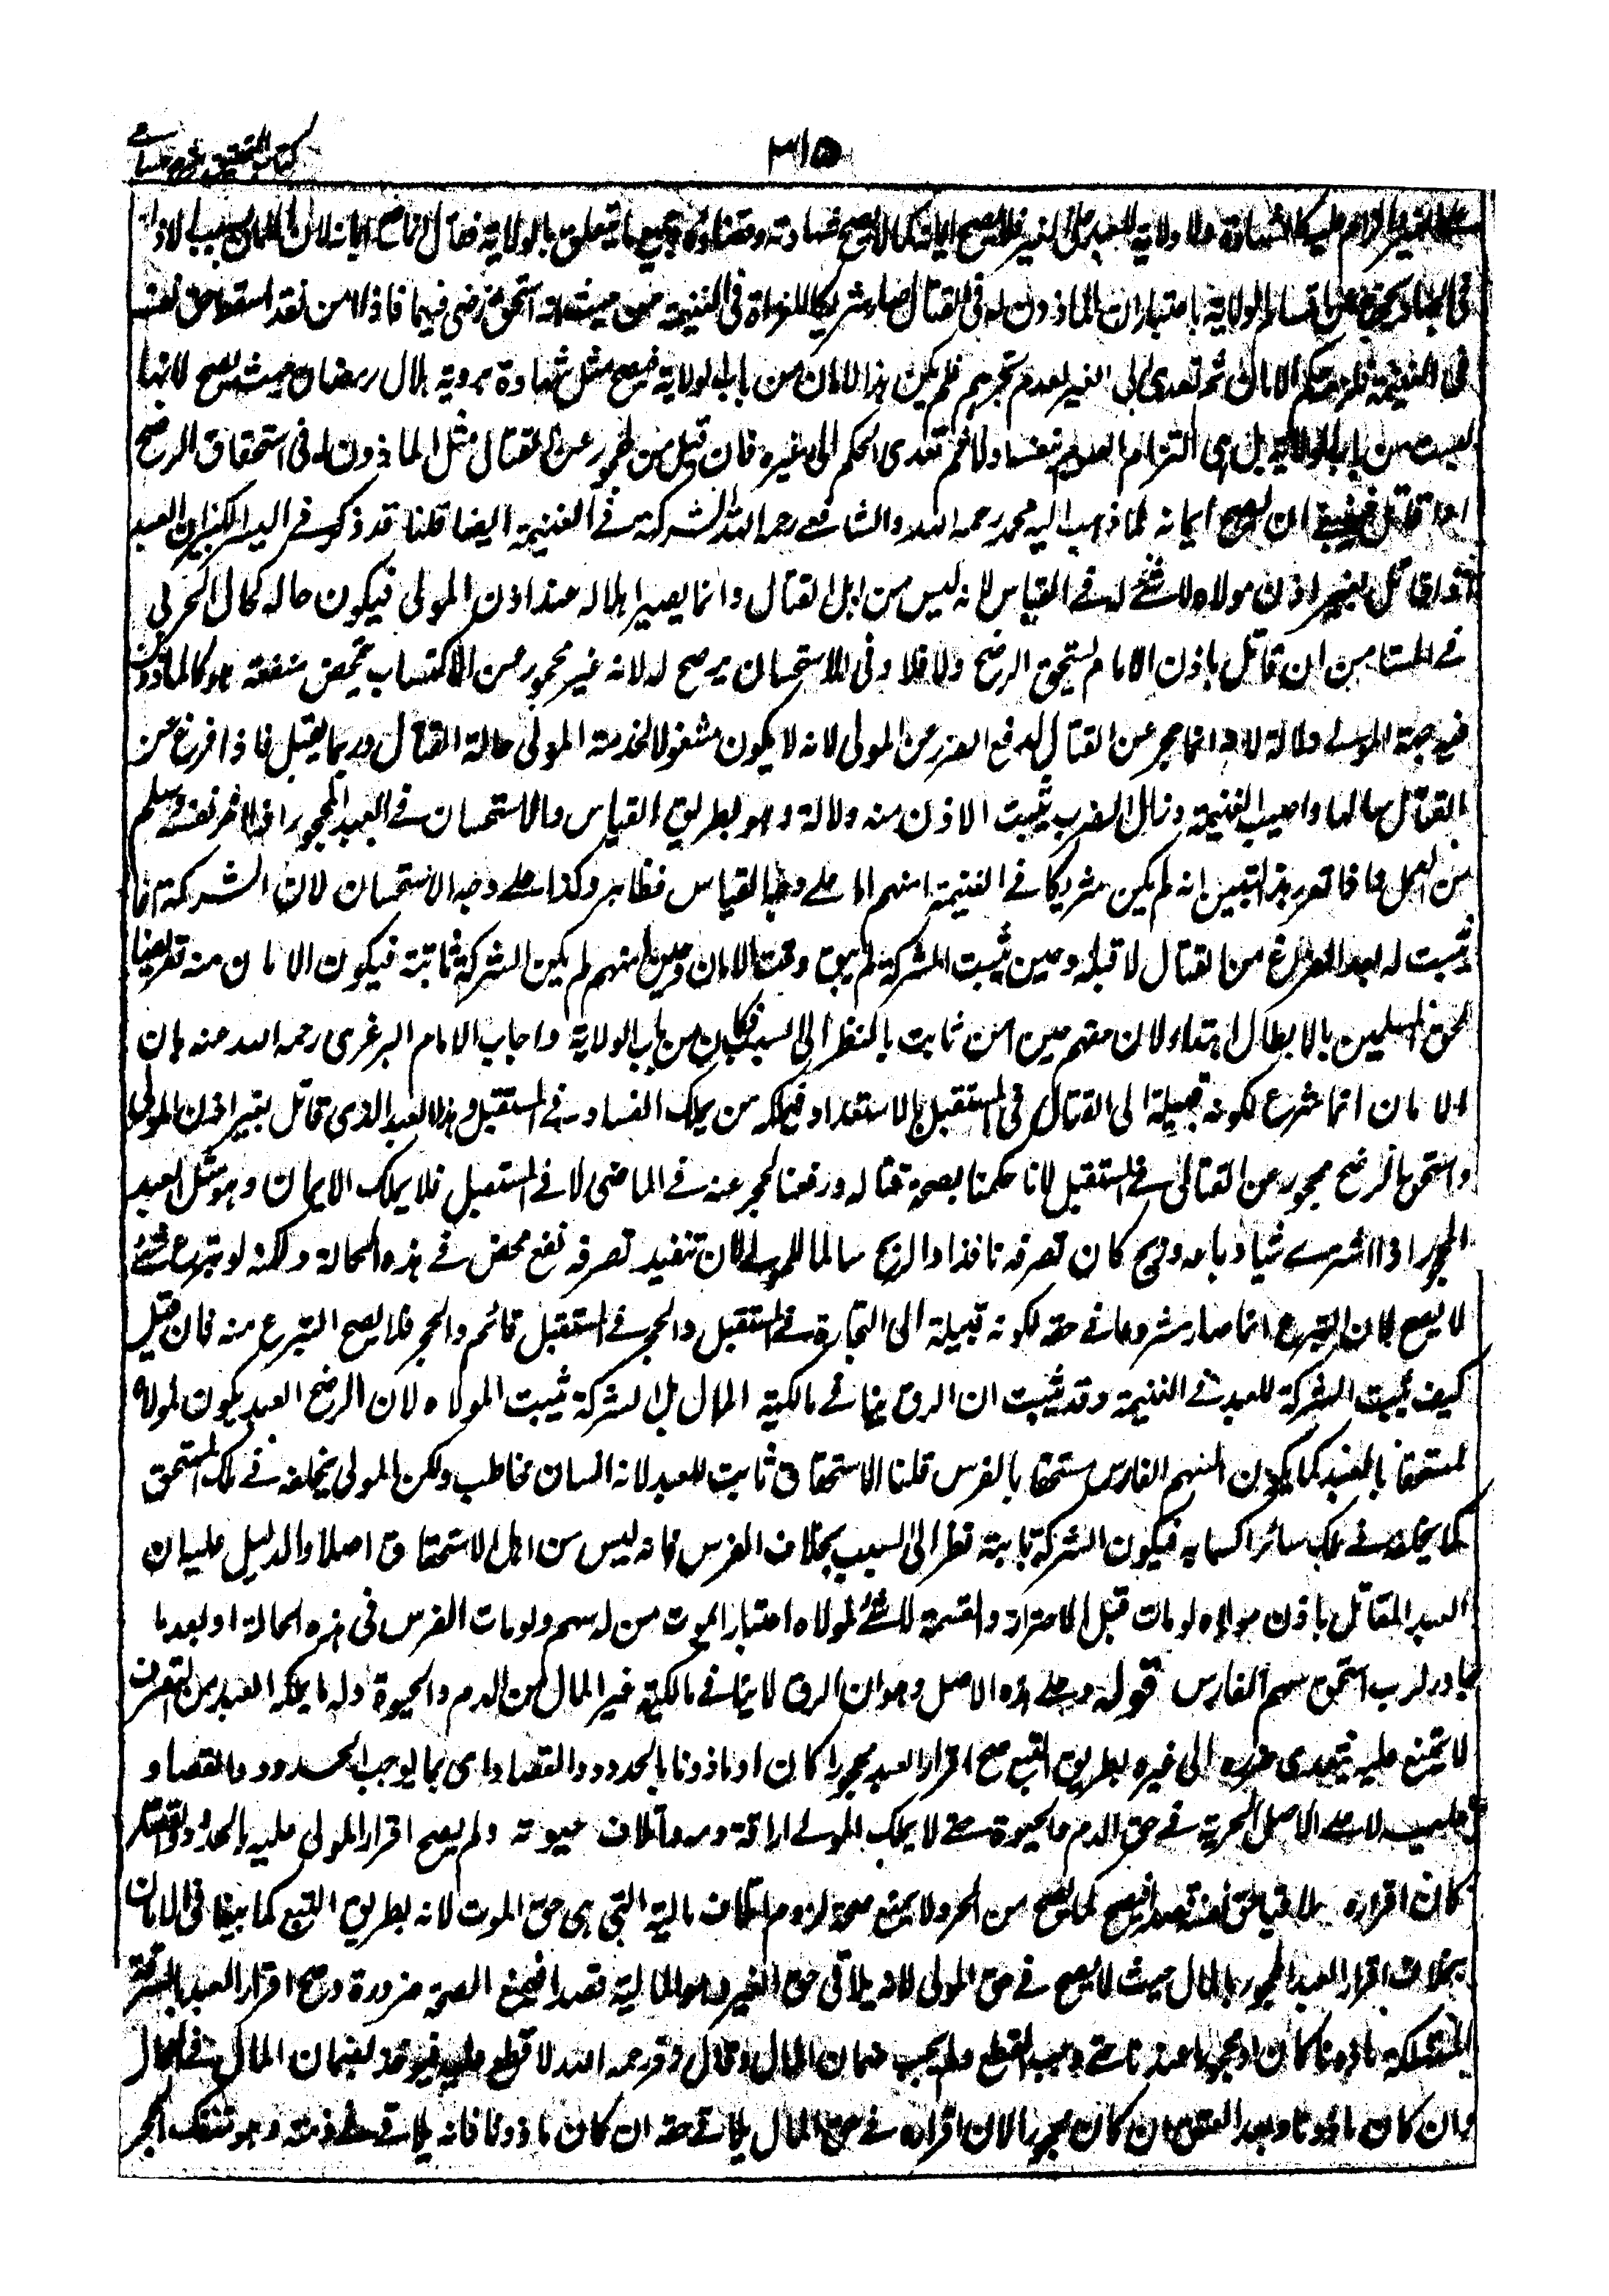 ٣١٥
كتاب التحقيق شرح حسامى
على الغير والزام عليه كالشهادة ولا ولاية للعبد على الغير فلا يصح ايمانه كما لا يصح شهادته وقضاؤه وجميع ما يتعلق بالولاية فقال انما صح ايمانه لان الامان بسبب الاذن
فى الجهاد يخرج عن اقسام الولاية باعتبار ان الماذون له فى القتال صار شريكا للغزاة فى الغنيمة من حيث انه استحق رضخا فيها فاذا امن فقد اسقط حق نفسه
فى الغنيمة فلزمه حكم الامان ثم تعدى الى الغير لعدم تجزيه فلم يكن هذا الامان من باب الولاية فيصح مثل شهادة بروية هلال رمضان حيث يصح لانها
ليست من باب الولاية بل هى التزام الصوم نفسه اولا ثم تعدى الحكم الى غيره فان قيل من المحجور عن القتال مثل الماذون له فى استحقاق الرضخ
اذا قاتل فينبغى ان يصح ايمانه كما ذهب اليه محمد رحمه الله والشافعى رحمه الله للشركة فى الغنيمة ايضا قلنا قد ذكر فى السير الكبير ان العبد
اذا قاتل بغير اذن مولاه لا شئ له فى القياس لانه ليس من اهل القتال وانما يصير اهلا له عند اذن المولى فيكون حاله كحال الحربى
فى المستامن ان قاتل باذن الامام يستحق الرضخ والا فلا وفى الاستحسان يرضخ له لانه غير محجور عن الاكتساب بمحض منفعته هو كالماذون
فيه من جهة المولى دلالة لانه انما حجر عن القتال لدفع الضرر عن المولى لانه لا يكون مشغولا بخدمة المولى حالة القتال وربما يقتل فاذا فرغ عن
القتال سالما واصيب الغنيمة وزال الضرر يثبت الاذن منه دلالة وهو بطريق القياس والاستحسان فى العبد المحجور اذا اجر نفسه وسلم
من العمل فاذا تقرر هذا تبين انه لم يكن شريكا فى الغنيمة منهم اما على وجه القياس فظاهر وكذا على وجه الاستحسان لان الشركة انما
تثبت له بعد الفراغ من القتال لا قبله وحين تثبت الشركة لم يبق وقت الامان وحين امنهم لم يكن الشركة ثابتة فيكون الامان منه تعرضا
لحق المسلمين بالابطال ابتداء لان حقهم حين امن ثابت بالنظر الى السبب فكان من باب الولاية واجاب الامام البرغرى رحمه الله عنه بان
الامان انما شرع لكونه وسيلة الى القتال فى المستقبل بالاستعداد فيملكه من يملك الفساد فى المستقبل وهذا العبد الذى قاتل بغير اذن المولى
واستحق الرضخ محجور عن القتال فى المستقبل لانا حكمنا بصحة قتاله ورفعنا الحجر عنه فى الماضى لا فى المستقبل فلا يملك الايمان وهو مثل العبد
المحجور اذا اشترى شيئا وباعه وربح كان تصرفه نافذا والربح سالما للمولى لان تنفيذ تصرفه نفع محض فى هذه الحالة ولكنه لو تبرع بشئ
لا يصح لان التبرع انما صار مشروعا فى حقه لكونه وسيلة الى التجارة فى المستقبل والحجر فى المستقبل قائم والحجر فلا يصح التبرع منه فان قيل
كيف يثبت الشركة للعبد فى الغنيمة وقد ثبت ان الرق ينافى مالكية المال بل الشركة تثبت لمولاه لان الرضخ العبد يكون لمولاه
مستحقا بالعبد كما يكون السهم الفارس مستحقا بالفرس قلنا الاستحقاق ثابت للعبد لانه انسان مخاطب ولكن المولى يخلفه فى ملك المستحق
كما يخلفه فى ملك سائر اكسابه فيكون الشركة ثابتة نظرا الى السبب بخلاف الفرس فانه ليس من اهل الاستحقاق اصلا والدليل عليه ان
العبد المقاتل باذن مولاه لو مات قبل الاحراز والقسمة لا شئ لمولاه اعتبارا لموت من له سهم ولو مات الفرس فى هذه الحالة او بعد ما
جاوز الدرب استحق سهم الفارس قوله وعلى هذه الاصل وهو ان الرق لا ينافى مالكية غير المال من الدم والحيوة وله ما يملكه العبد من التصرف
لا تمنع عليه بتعدى ضرره الى غيره بطريق التبع صح اقرار العبد محجورا كان او ماذونا بالحدود والقصاص اى بما يوجب الحدود والقصاص
عليه لانه على الاصل الحرية فى حق الدم والحيوة حتى لا يملك المولى اراقة دمه واتلاف حيوته ولم يصح اقرار المولى عليه بالحدود والقصاص
كان اقراره ملاقيا حق نفسه قصدا فيصح كما يصح من الحر ولا يمنع صحته لزوم اتلاف مالية التى هى حق المولى لانه بطريق التبع كما بينا فى الامان
بخلاف اقرار العبد المحجور بالمال حيث لا يصح فى حق المولى لانه يلاقى حق الغير وهو المالية قصدا فيمنع الصحة ضرورة وصح اقرار العبد بالسرقة
المستهلكة ماذونا كان او محجورا عندنا حتى وجب القطع ولم يجب ضمان المال وقال زفر رحمه الله لا قطع عليه فيؤخذ بضمان المال فى الحال
وان كان ماذونا وبعد العتق ان كان محجورا لان اقراره فى حق المال يلاقى حقه ان كان ماذونا فانه يلاقى ذمته وهو منفك الحجر